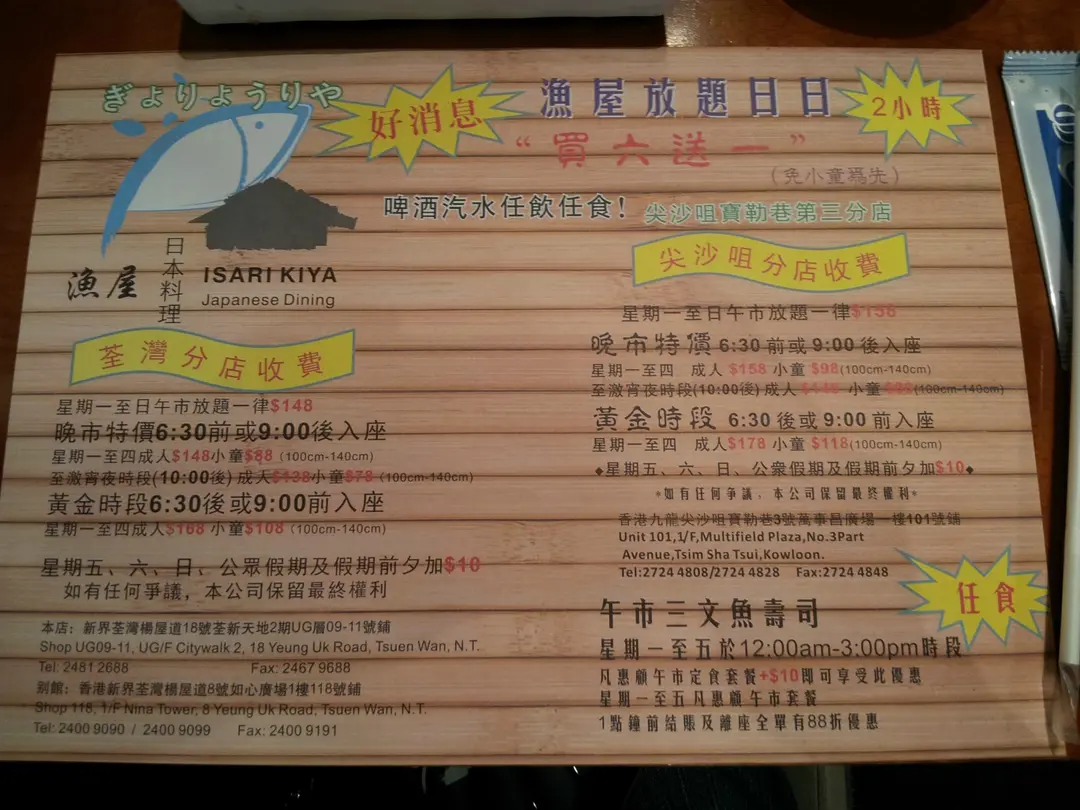 ぎょりょうりや
好消息
漁屋放題日日
2小時
“買六送一”
(免小童為先)
啤酒汽水任飲任食!
尖沙咀寶勒巷第三分店
漁屋
日本料理
ISARI KIYA
Japanese Dining
荃灣分店收費
星期一至日午市放題一律$148
晚市特價6:30前或9:00後入座
星期一至四成人$148小童$88 (100cm-140cm)
至激宵夜時段(10:00後) 成人$138小童$78 (100cm-140cm)
黃金時段6:30後或9:00前入座
星期一至四成人$168 小童$108 (100cm-140cm)
星期五、六、日、公眾假期及假期前夕加$10
如有任何爭議，本公司保留最終權利
本店: 新界荃灣楊屋道18號荃新天地2期UG層09-11號鋪
Shop UG09-11, UG/F Citywalk 2, 18 Yeung Uk Road, Tsuen Wan, N.T.
Tel: 2481 2688 Fax: 2467 9688
別館: 香港新界荃灣楊屋道8號如心廣場1樓118號鋪
Shop 118, 1/F Nina Tower, 8 Yeung Uk Road, Tsuen Wan, N.T.
Tel: 2400 9090 / 2400 9099 Fax: 2400 9191
尖沙咀分店收費
星期一至日午市放題一律$158
晚市特價 6:30 前或 9:00 後入座
星期一至四 成人 $158 小童 $98(100cm-140cm)
至激宵夜時段(10:00後) 成人 小童 (100cm-140cm)
黃金時段 6:30 後或 9:00 前入座
星期一至四 成人$178 小童 $118(100cm-140cm)
◆星期五、六、日、公衆假期及假期前夕加$10◆
*如有任何爭議，本公司保留最終權利*
香港九龍尖沙咀寶勒巷3號萬事昌廣場一樓101號鋪
Unit 101,1/F,Multifield Plaza,No.3Part
Avenue,Tsim Sha Tsui,Kowloon.
Tel:2724 4808/2724 4828 Fax:2724 4848
任食
午市三文魚壽司
星期一至五於12:00am-3:00pm時段
凡惠顧午市定食套餐+$10即可享受此優惠
星期一至五凡惠顧午市套餐
1點鐘前結賬及離座全單有88折優惠